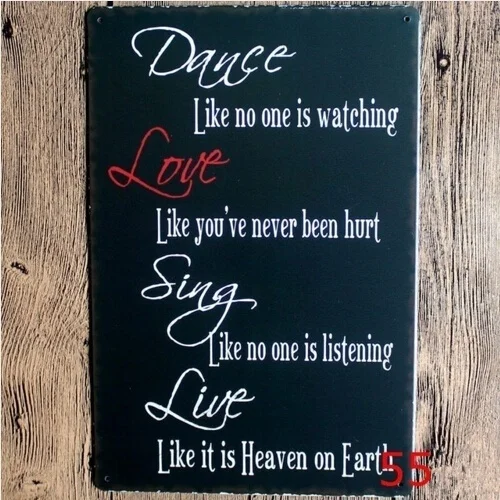 Dance
Like no one is watching
Love
Like you've never been hurt
Sing
Like no one is listening
Live
Like it is Heaven on Earth
55